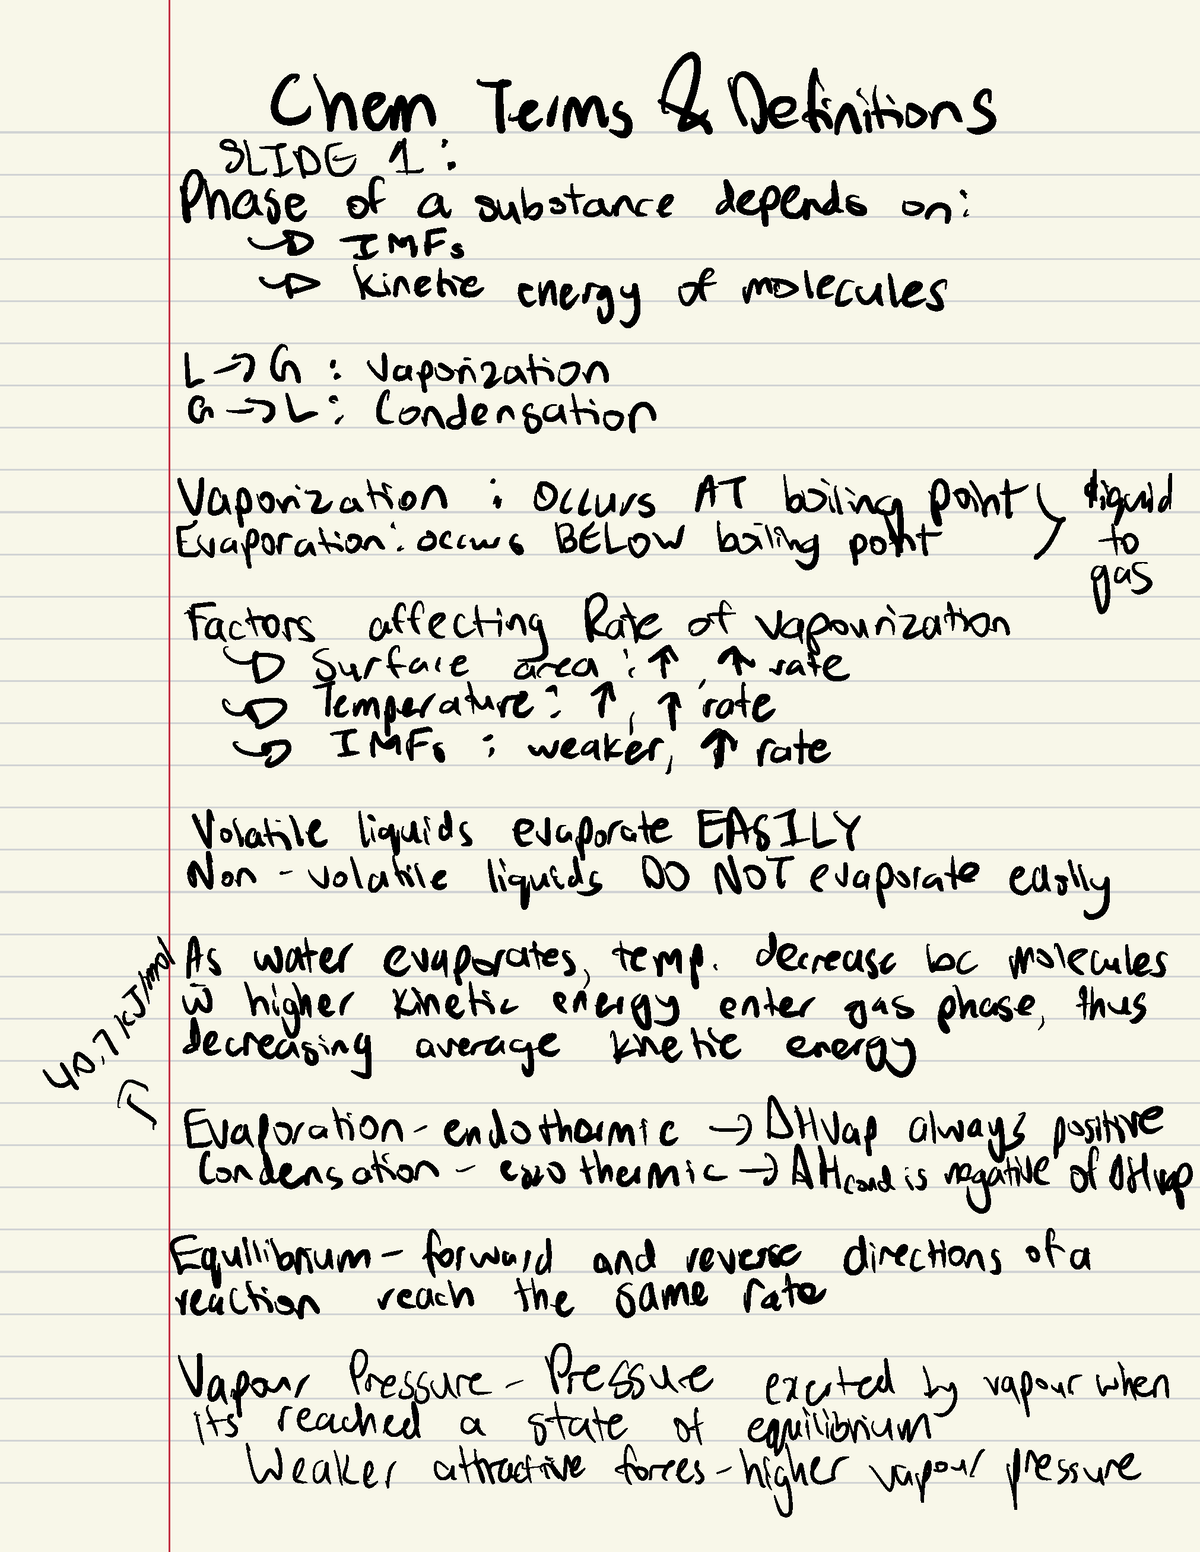 Chem Terms & Definitions
SLIDE 1:
Phase of a substance depends on:
↳ IMFs
↳ kinetic energy of molecules
L → G : Vaporization
G → L : Condensation
Vaporization : Occurs AT boiling point
Evaporation : occurs BELOW boiling point
liquid
to
gas
Factors affecting Rate of vapourization
↳ Surface area : ↑, ↑ rate
↳ Temperature : ↑, ↑ rate
↳ IMFs : weaker, ↑ rate
Volatile liquids evaporate EASILY
Non-volatile liquids DO NOT evaporate easily
As water evaporates, temp. decrease bc molecules
w̅ higher kinetic energy enter gas phase, thus
decreasing average kinetic energy
40.7 kJ/mol
Evaporation - endothermic → ΔHvap always positive
Condensation - exothermic → ΔHcond is negative of ΔHvap
Equilibrium - forward and reverse directions of a
reaction reach the same rate
Vapour Pressure - Pressure excited by vapour when
its reached a state of equilibrium
Weaker attractive forces - higher vapour pressure